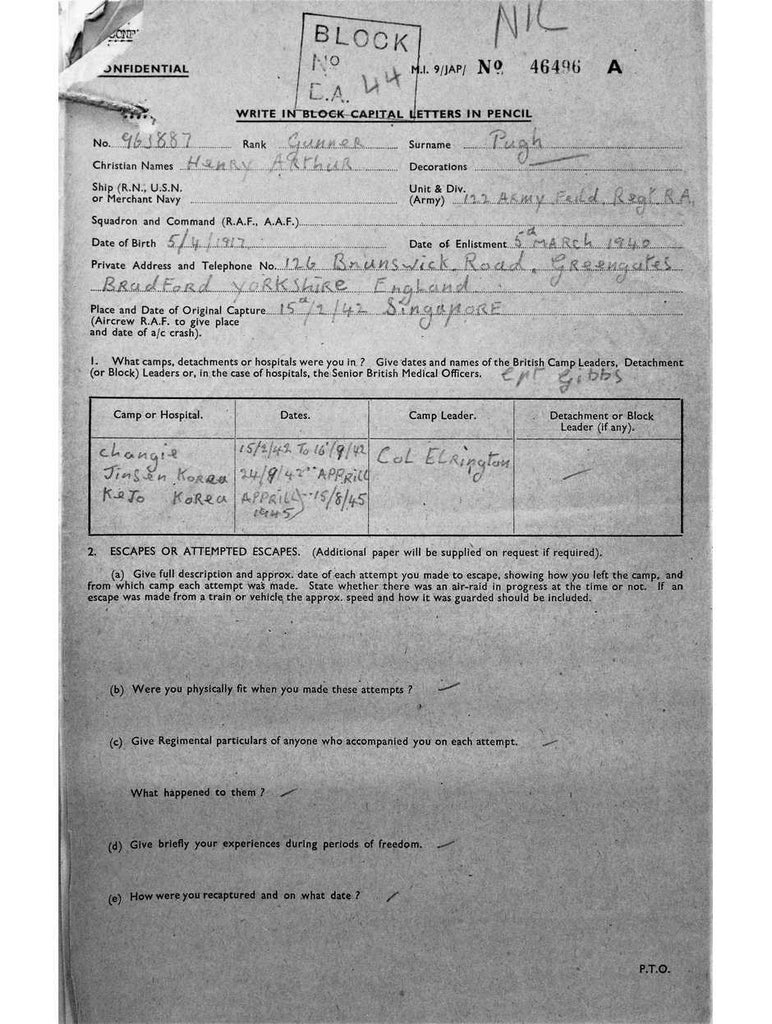 NIL
BLOCK
NO
E.A. 44
CONFIDENTIAL
M.I. 9/JAP/ No. 46496 A
WRITE IN BLOCK CAPITAL LETTERS IN PENCIL
No. 963887 Rank Gunner Surname Pugh
Christian Names Henry Arthur Decorations —
Ship (R.N., U.S.N.
or Merchant Navy
Unit & Div.
(Army) 122 Army Feild Regt. R.A.
Squadron and Command (R.A.F., A.A.F.)
Date of Birth 5/4/1917 Date of Enlistment 5th MARCH 1940
Private Address and Telephone No. 126 Brunswick Road, Greengates
Bradford YORKSHIRE England
Place and Date of Original Capture 15th/2/42 SINGAPORE
(Aircrew R.A.F. to give place
and date of a/c crash).
1. What camps, detachments or hospitals were you in ? Give dates and names of the British Camp Leaders, Detachment
(or Block) Leaders or, in the case of hospitals, the Senior British Medical Officers. Cpt Gibbs
Camp or Hospital. Dates. Camp Leader. Detachment or Block
Leader (if any).
Changie 15/2/42 To 16/9/42 Col Elrington —
Jinsen Korea 24/9/42 " APPRILL
KeJo Korea APPRILL - 15/8/45
1945
2. ESCAPES OR ATTEMPTED ESCAPES. (Additional paper will be supplied on request if required).
(a) Give full description and approx. date of each attempt you made to escape, showing how you left the camp, and
from which camp each attempt was made. State whether there was an air-raid in progress at the time or not. If an
escape was made from a train or vehicle the approx. speed and how it was guarded should be included.
(b) Were you physically fit when you made these attempts ? —
(c) Give Regimental particulars of anyone who accompanied you on each attempt. —
What happened to them ? —
(d) Give briefly your experiences during periods of freedom. —
(e) How were you recaptured and on what date ? —
P.T.O.